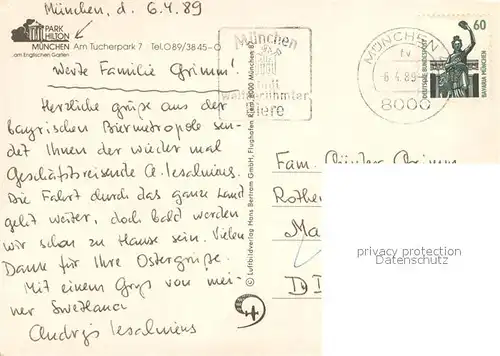 München, d. 6.4.89
PARK
HILTON
MÜNCHEN Am Tucherpark 7 Tel. 089/3845-0
am Englischen Garten
Werte Familie Grimm!
Herzliche grüße aus der
bayrischen Biermetropole sen-
det Ihnen der wieder mal
Geschäftsreisende A. Iesalnieus.
Die Fahrt durch das ganze Land
geht weiter, doch bald werden
wir schon zu Hause sein. Vielen
Dank für Ihre Ostergrüße.
Mit einem Gruß von mei-
ner Swetlana
Andrejs Iesalnieus
© Luftbildverlag Hans Bertram GmbH, Flughafen Riem, 8000 München 87
München
Stadt
weltberühmter
Biere
MÜNCHEN
tv
-6.4.89-
8000
60
DEUTSCHE BUNDESPOST
BAVARIA MÜNCHEN
Fam. Günter Grimm
Rother
Ma
DD
privacy protection
Datenschutz